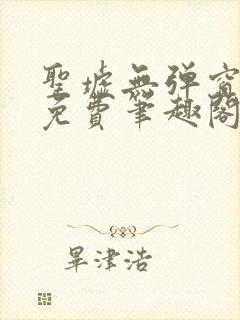 聖墟無彈窗
免費筆趣閣
畢津浩